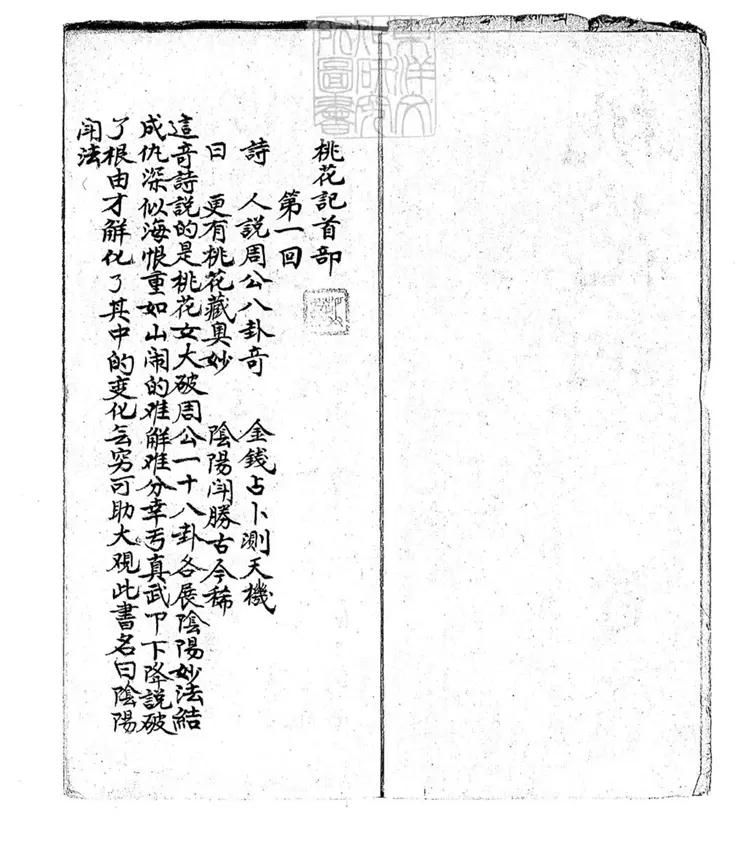 東洋文
化研究
所圖書
桃花記首部
第一回
詩 人說周公八卦奇 金錢占卜測天機
曰 更有桃花藏奧妙 陰陽閗勝古今稀
這奇詩說的是桃花女大破周公一十八卦各展陰陽妙法結
成仇深似海恨重如山闹的难解难分幸亏真武下降說破
了根由才解化了其中的变化无穷可助大觀此書名曰陰陽
閗法